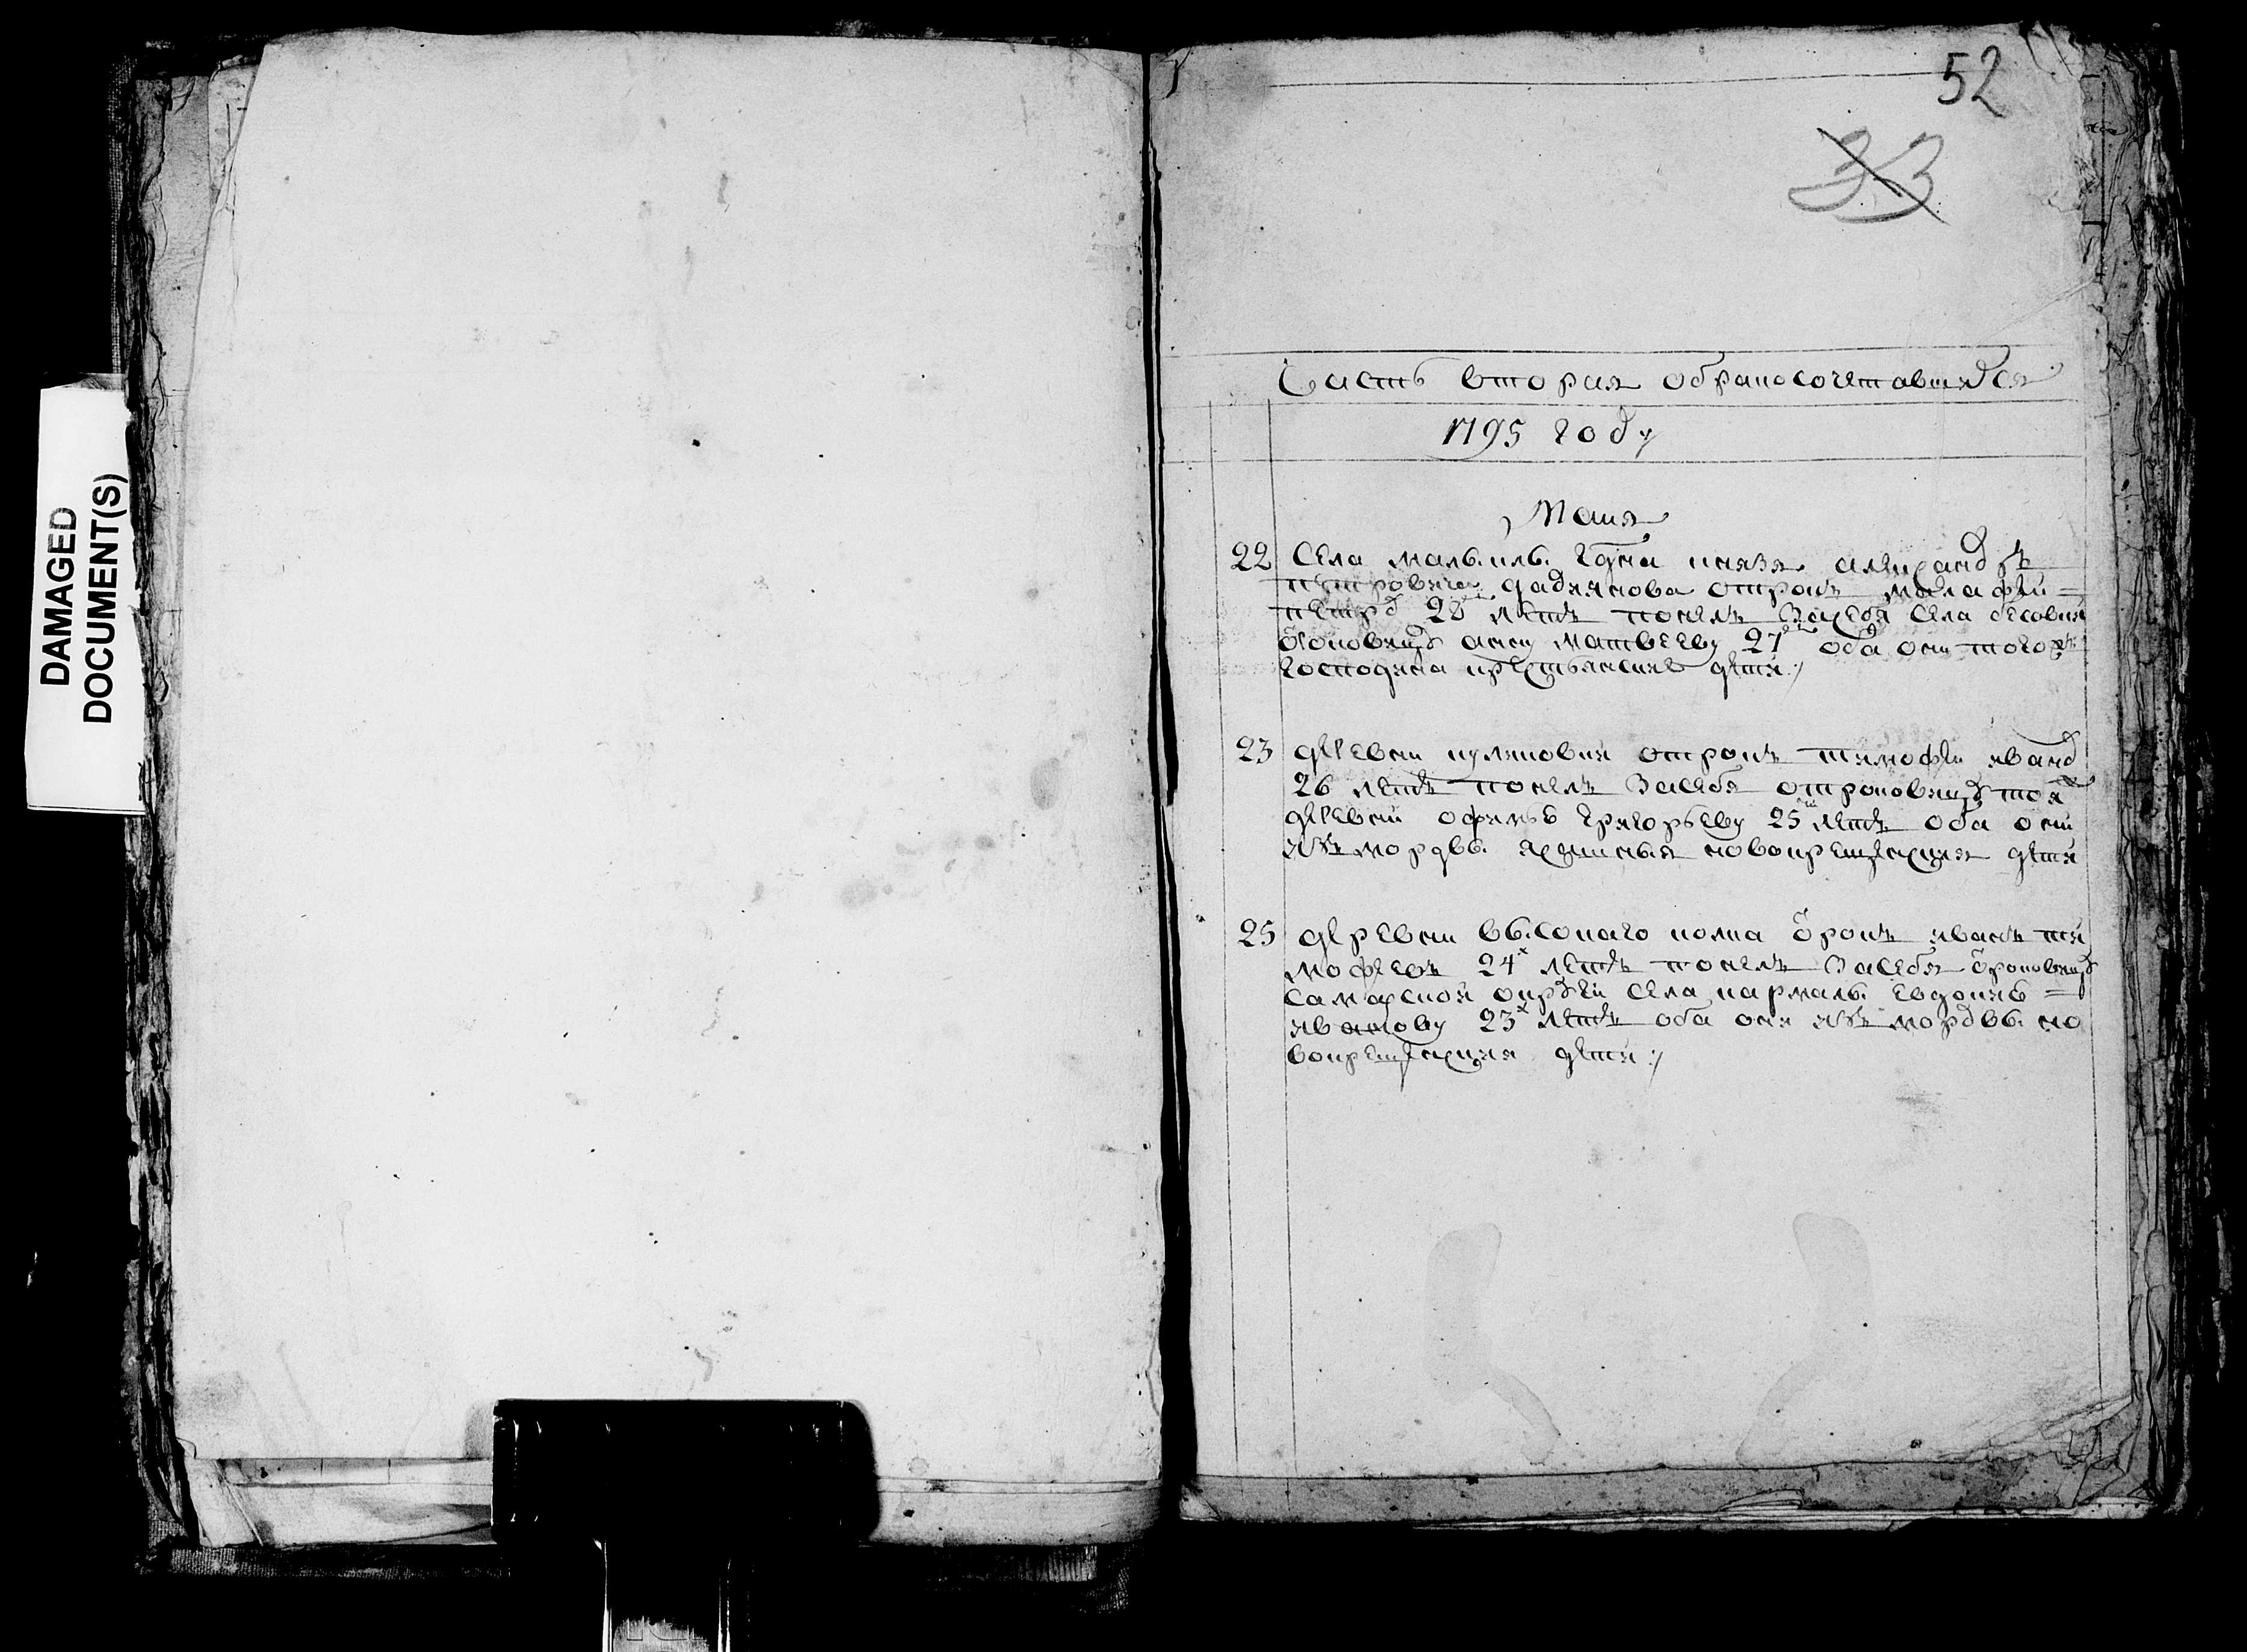 DAMAGED
DOCUMENT(S)
52
33
Часть вторая обракосочетавшихся
1795 году
Маия
22 Села князя александръ
петровича отрокъ малафеи
петровъ 28 летъ понелъ за себя села
анну матвееву 27 оба они тогожъ
господина крестьянские дети
23 деревни отрокъ тимофеи ивановъ
26 летъ понелъ засебя отроковицу тои
деревни офимью григорьеву 25 летъ оба они
изъ мордвы новокрещенския дети
25 деревни полка отрокъ иванъ ти
мофеевъ 24х летъ понелъ засебя отроковицу
самарской округи села кармалы евдокию
иванову 23х летъ оба они изъ мордвы но
вокрещенския дети